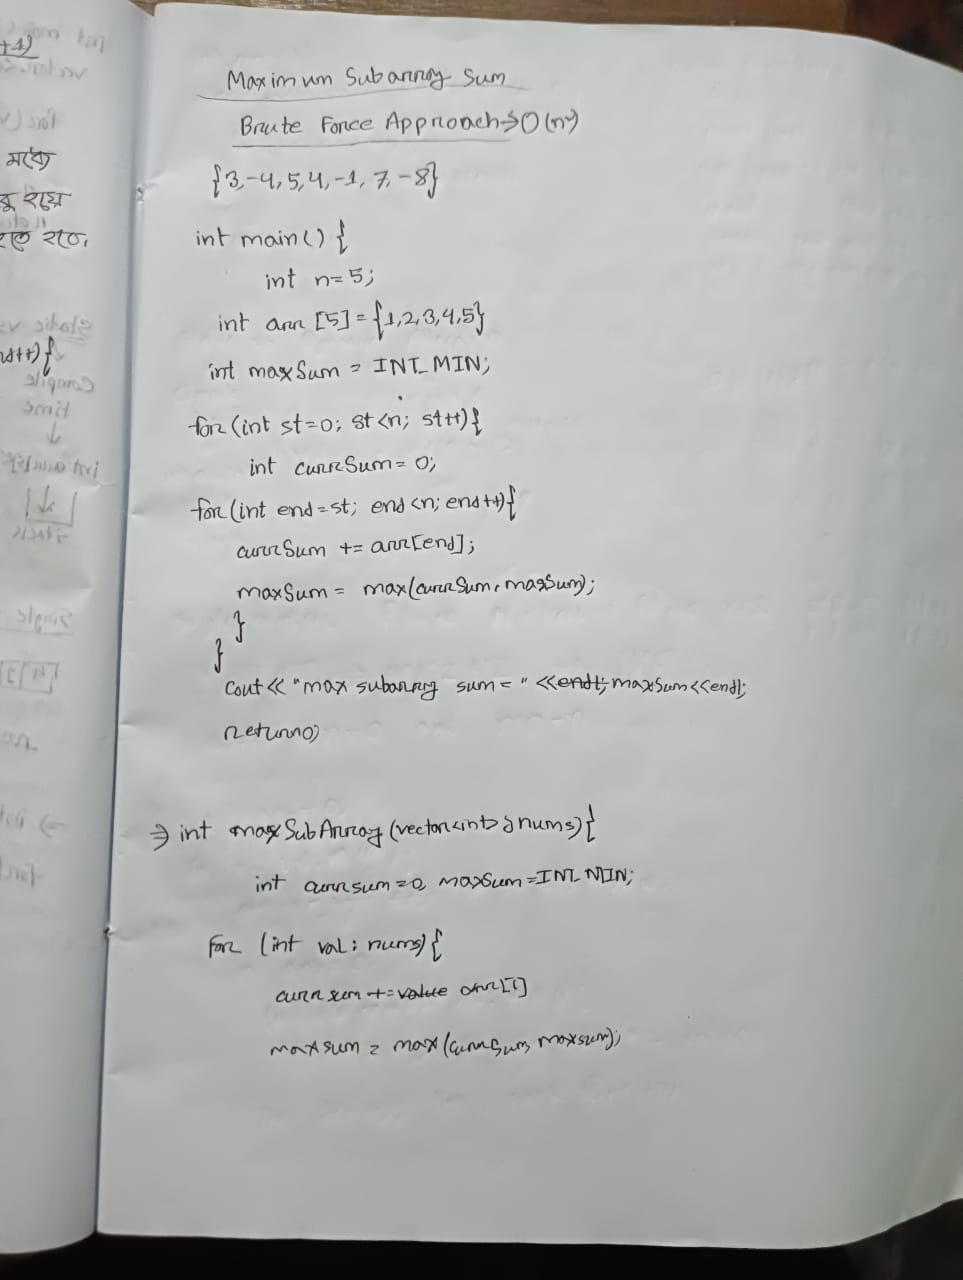 Maximum Subarray Sum
Brute Force Approach → O(n²)
{3,-4,5,4,-1,7,-8}
int main() {
int n=5;
int arr [5] = {1,2,3,4,5}
int maxSum = INT_MIN;
for(int st=0; st<n; st++){
int currSum = 0;
for(int end=st; end<n; end++){
currSum += arr[end];
maxSum = max(currSum, maxSum);
}
}
cout << "max subarray sum = " <<endl; maxSum<<endl;
return 0;
⇒ int maxSubArray (vector<int> & nums) {
int currsum = 0, maxSum = INT_MIN;
for (int val : nums) {
currsum += value arr[i]
maxsum = max (currSum, maxsum);
+1)
মধ্যে
হয়ে
হতে হবে,
st++){